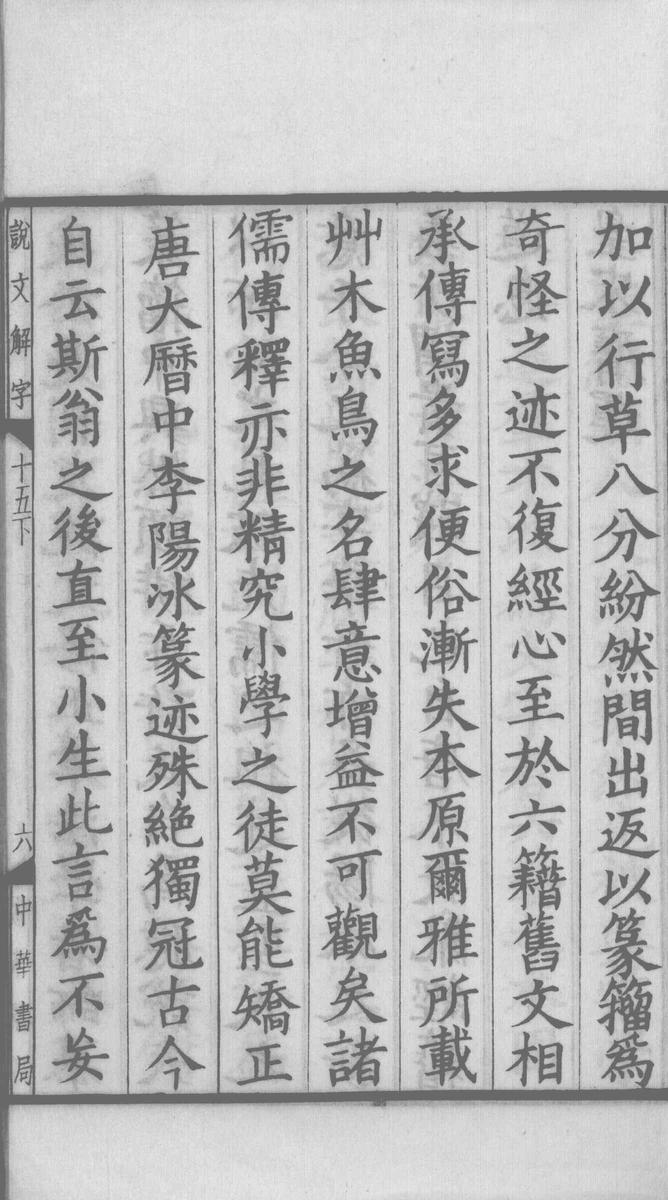 加以行草八分紛然間出返以篆籀為
奇怪之迹不復經心至於六籍舊文相
承傳寫多求便俗漸失本原爾雅所載
艸木魚鳥之名肆意增益不可觀矣諸
儒傳釋亦非精究小學之徒莫能矯正
唐大曆中李陽冰篆迹殊絕獨冠古今
自云斯翁之後直至小生此言為不妄
說文解字
十五下
六
中華書局